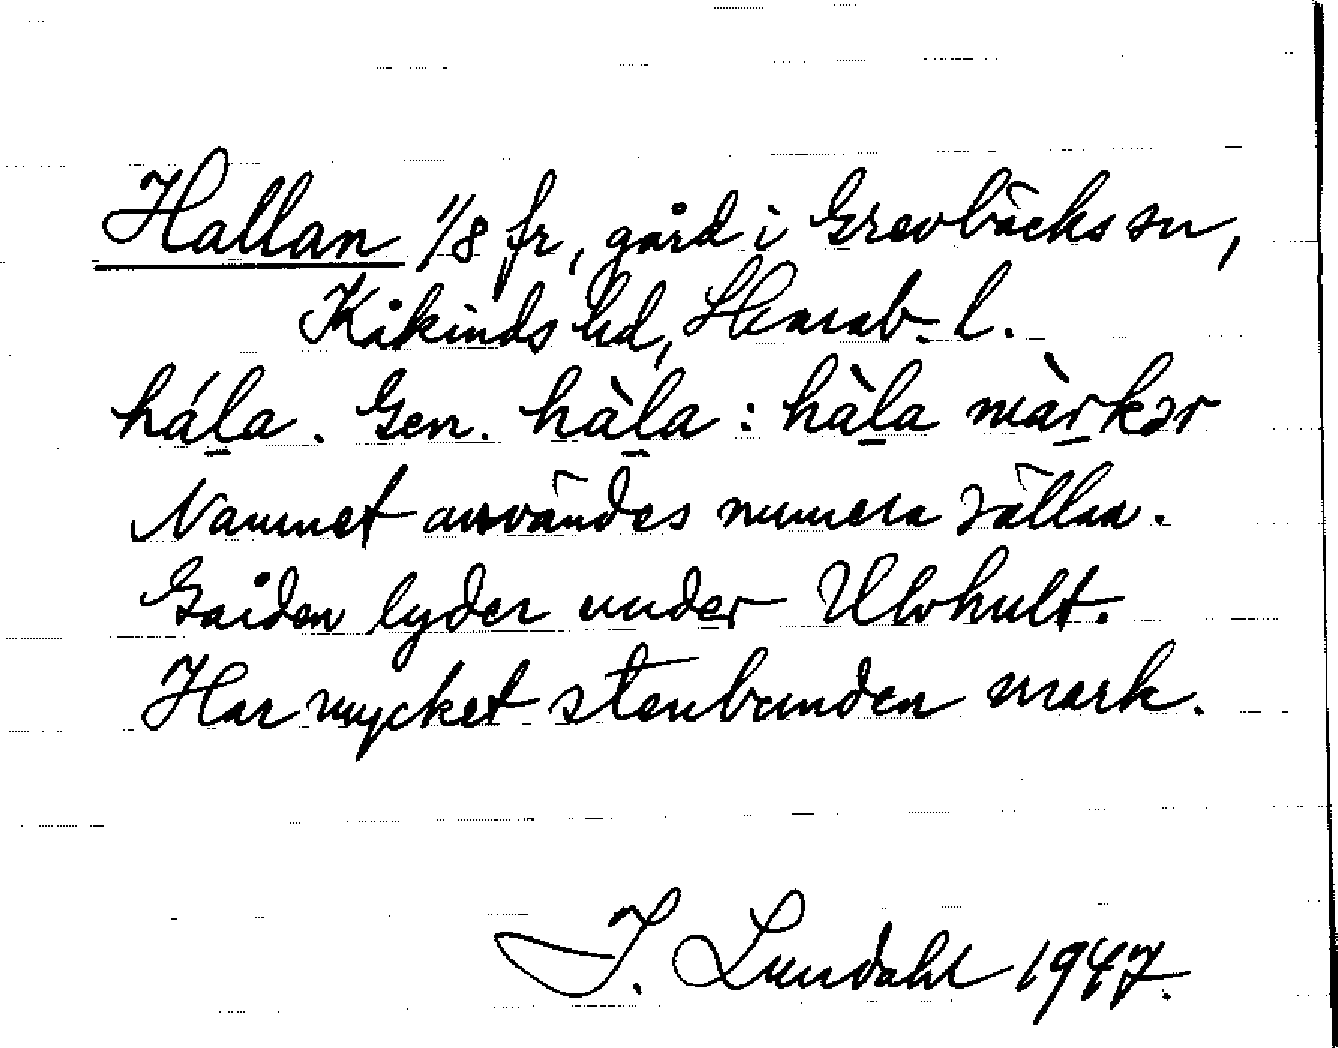 Hallan 1/8 fr, gård i Grevbäcks sn,
Kåkinds hd, Skarab. l.
hál̲a. Gen. hàl̲a : hàl̲a màr̲kər
Namnet användes numera sällan.
Gården lyder under Ulvhult.
Har mycket stenbunden mark.
I. Lundahl 1947.